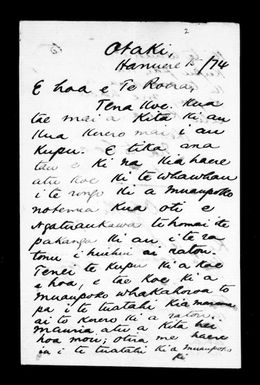 2
Otaki,
Hanuere 12/74
E hoa e Te Roera,
Tena koe. Kua
tae mai a Kita ki au
kua korero mai i au
kupu. E tika ana
tau e ki na kia haere
atu koe ki te whawhau
i te rongo ki a muaupoko
notemea kua oti e
Ngatiraukawa te homai te
pakanga ki au, i te ra
tonu i huihui ai ratou.
Tenei te kupu ki a koe
e hoa, e tae koe ki a
muaupoko whakahoroa to
pa i te tuatahi kia marama
ai to korero ki a ratou.
mauria atu a Kita hei
hoa mou; otira me haere
ia i te tuatahi ki a muaupoko
ki